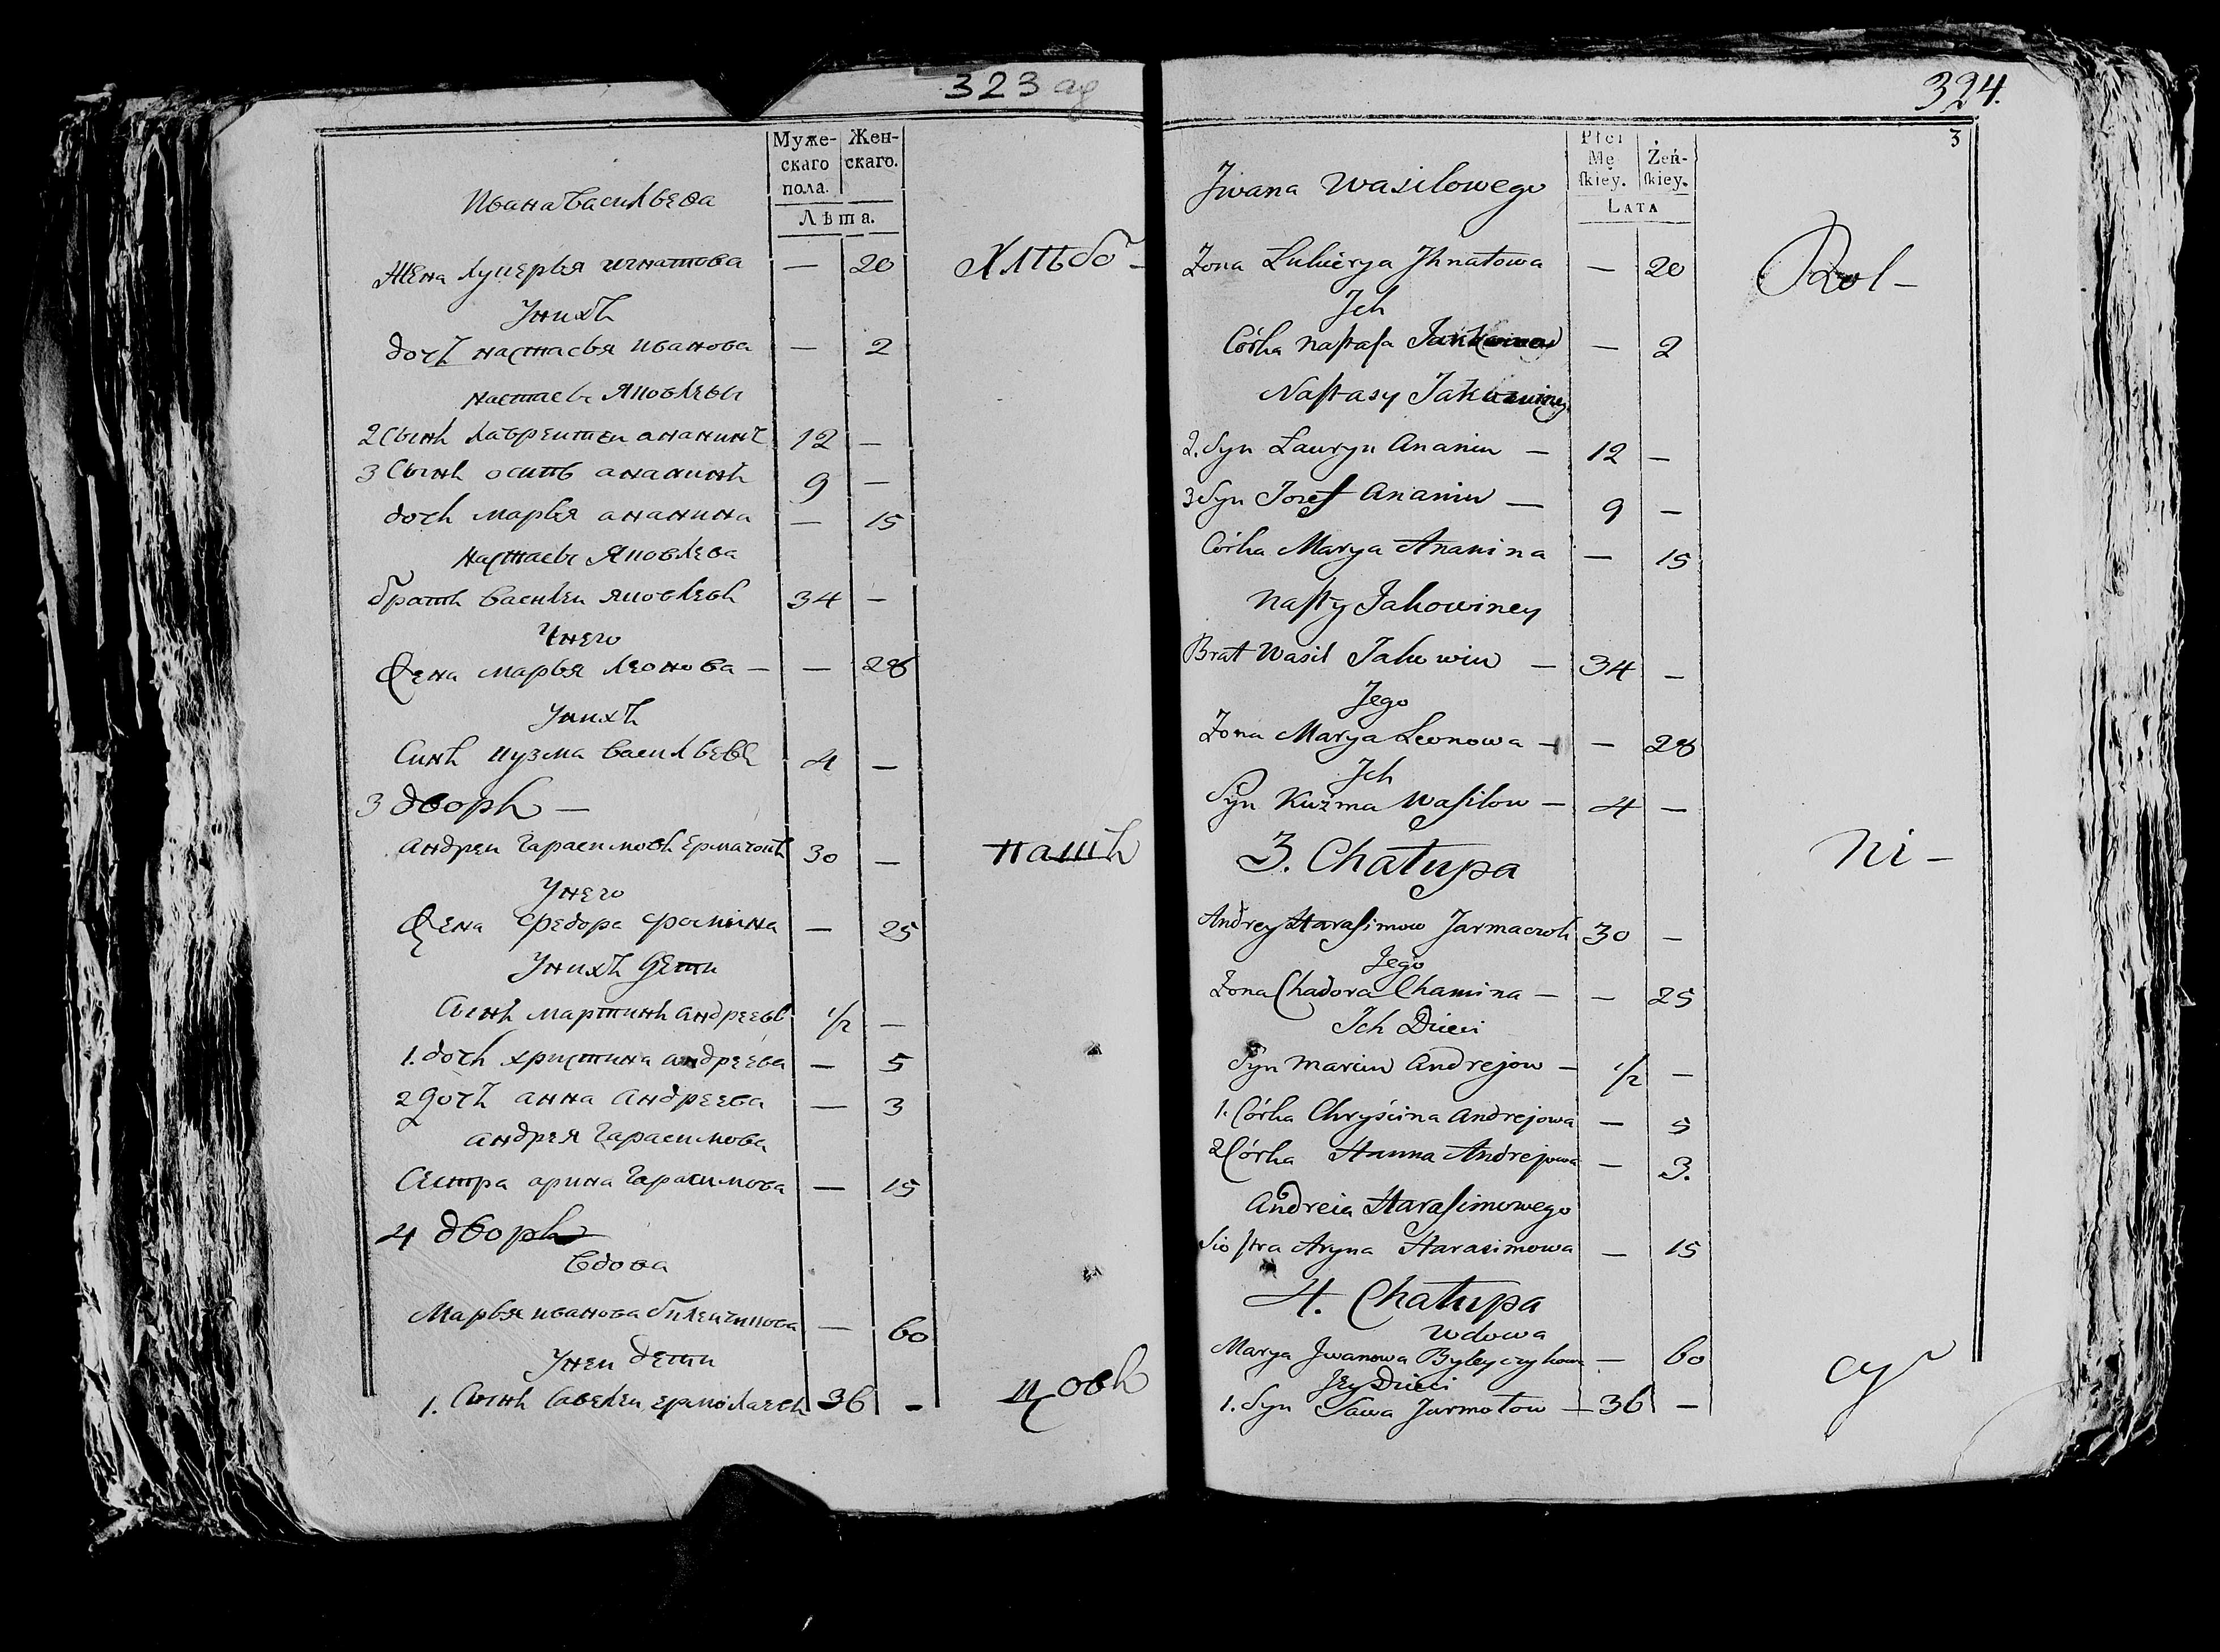 323 об
Муже-
скаго
пола.
Жен-
скаго.
Лѣта.
Ивана Васильева
Жена Лукерья Игнатова — 20
Хлѣбо-
У нихъ
дочъ Настасья Иванова — 2
Настасьи Яковлевы
2 Сынъ Лаврентеи Ананинъ 12 —
3 Сынъ Осипъ Ананинъ 9 —
дочь Марья Ананина — 15
Настасьи Яковлева
братъ Василеи Яковлевъ 34 —
У него
Жена Марья Леонова — — 28
У нихъ
Синъ Кузма Васильевъ 4 —
3 дворъ —
Андреи Гарасимовъ Ермачокъ 30 —
пашъ
У него
Жена Федора Фомина — 25
У нихъ дети
Сынъ Мартинъ Андреевъ 1/2 —
1. дочь Христина Андреева — 5
2 дочъ Анна Андреева — 3
Андрея Гарасимова
Сестра Арина Гарасимова — 15
4 дворъ
Вдова
Марья Иванова — 60
У неи дети
1. Сынъ Савелеи Ермолаевъ 36 —
цовъ
324.
3
Płci
Mę
skiey.
Żeń-
skiey.
LATA
Jwana Wasilowego
Żona Łukierya Jhnatowa — 20
Rol-
Jch
Córka Nastasa — 2
Nastasy
2. Syn Łauryn Ananin — 12 —
3 Syn Jozef Ananin — 9 —
Córka Marya Ananina — 15
Nasty Jakowiney
Brat Wasil Jakowin — 34 —
Jego
Żona Marya Leonowa — — 28
Jch
Syn Kuźma Wasilow — 4 —
3. Chałupa
ni-
Andrey Harasimow Jarmaczok 30 —
Jego
Żona Chadora Chamina — — 25
Jch Dzieci
Syn Marcin Andrejow — 1/2 —
1. Córka Chryścina Andrejowa — 5
2 Córka Hanna Andrejowa — 3.
Andreia Harasimowego
Siostra Aryna Harasimowa — 15
4. Chałupa
Wdowa
Marya Jwanowa Byleyczykowa — 60
cy
Jey Dzieci
1. Syn Sawa Jarmołow — 36 —